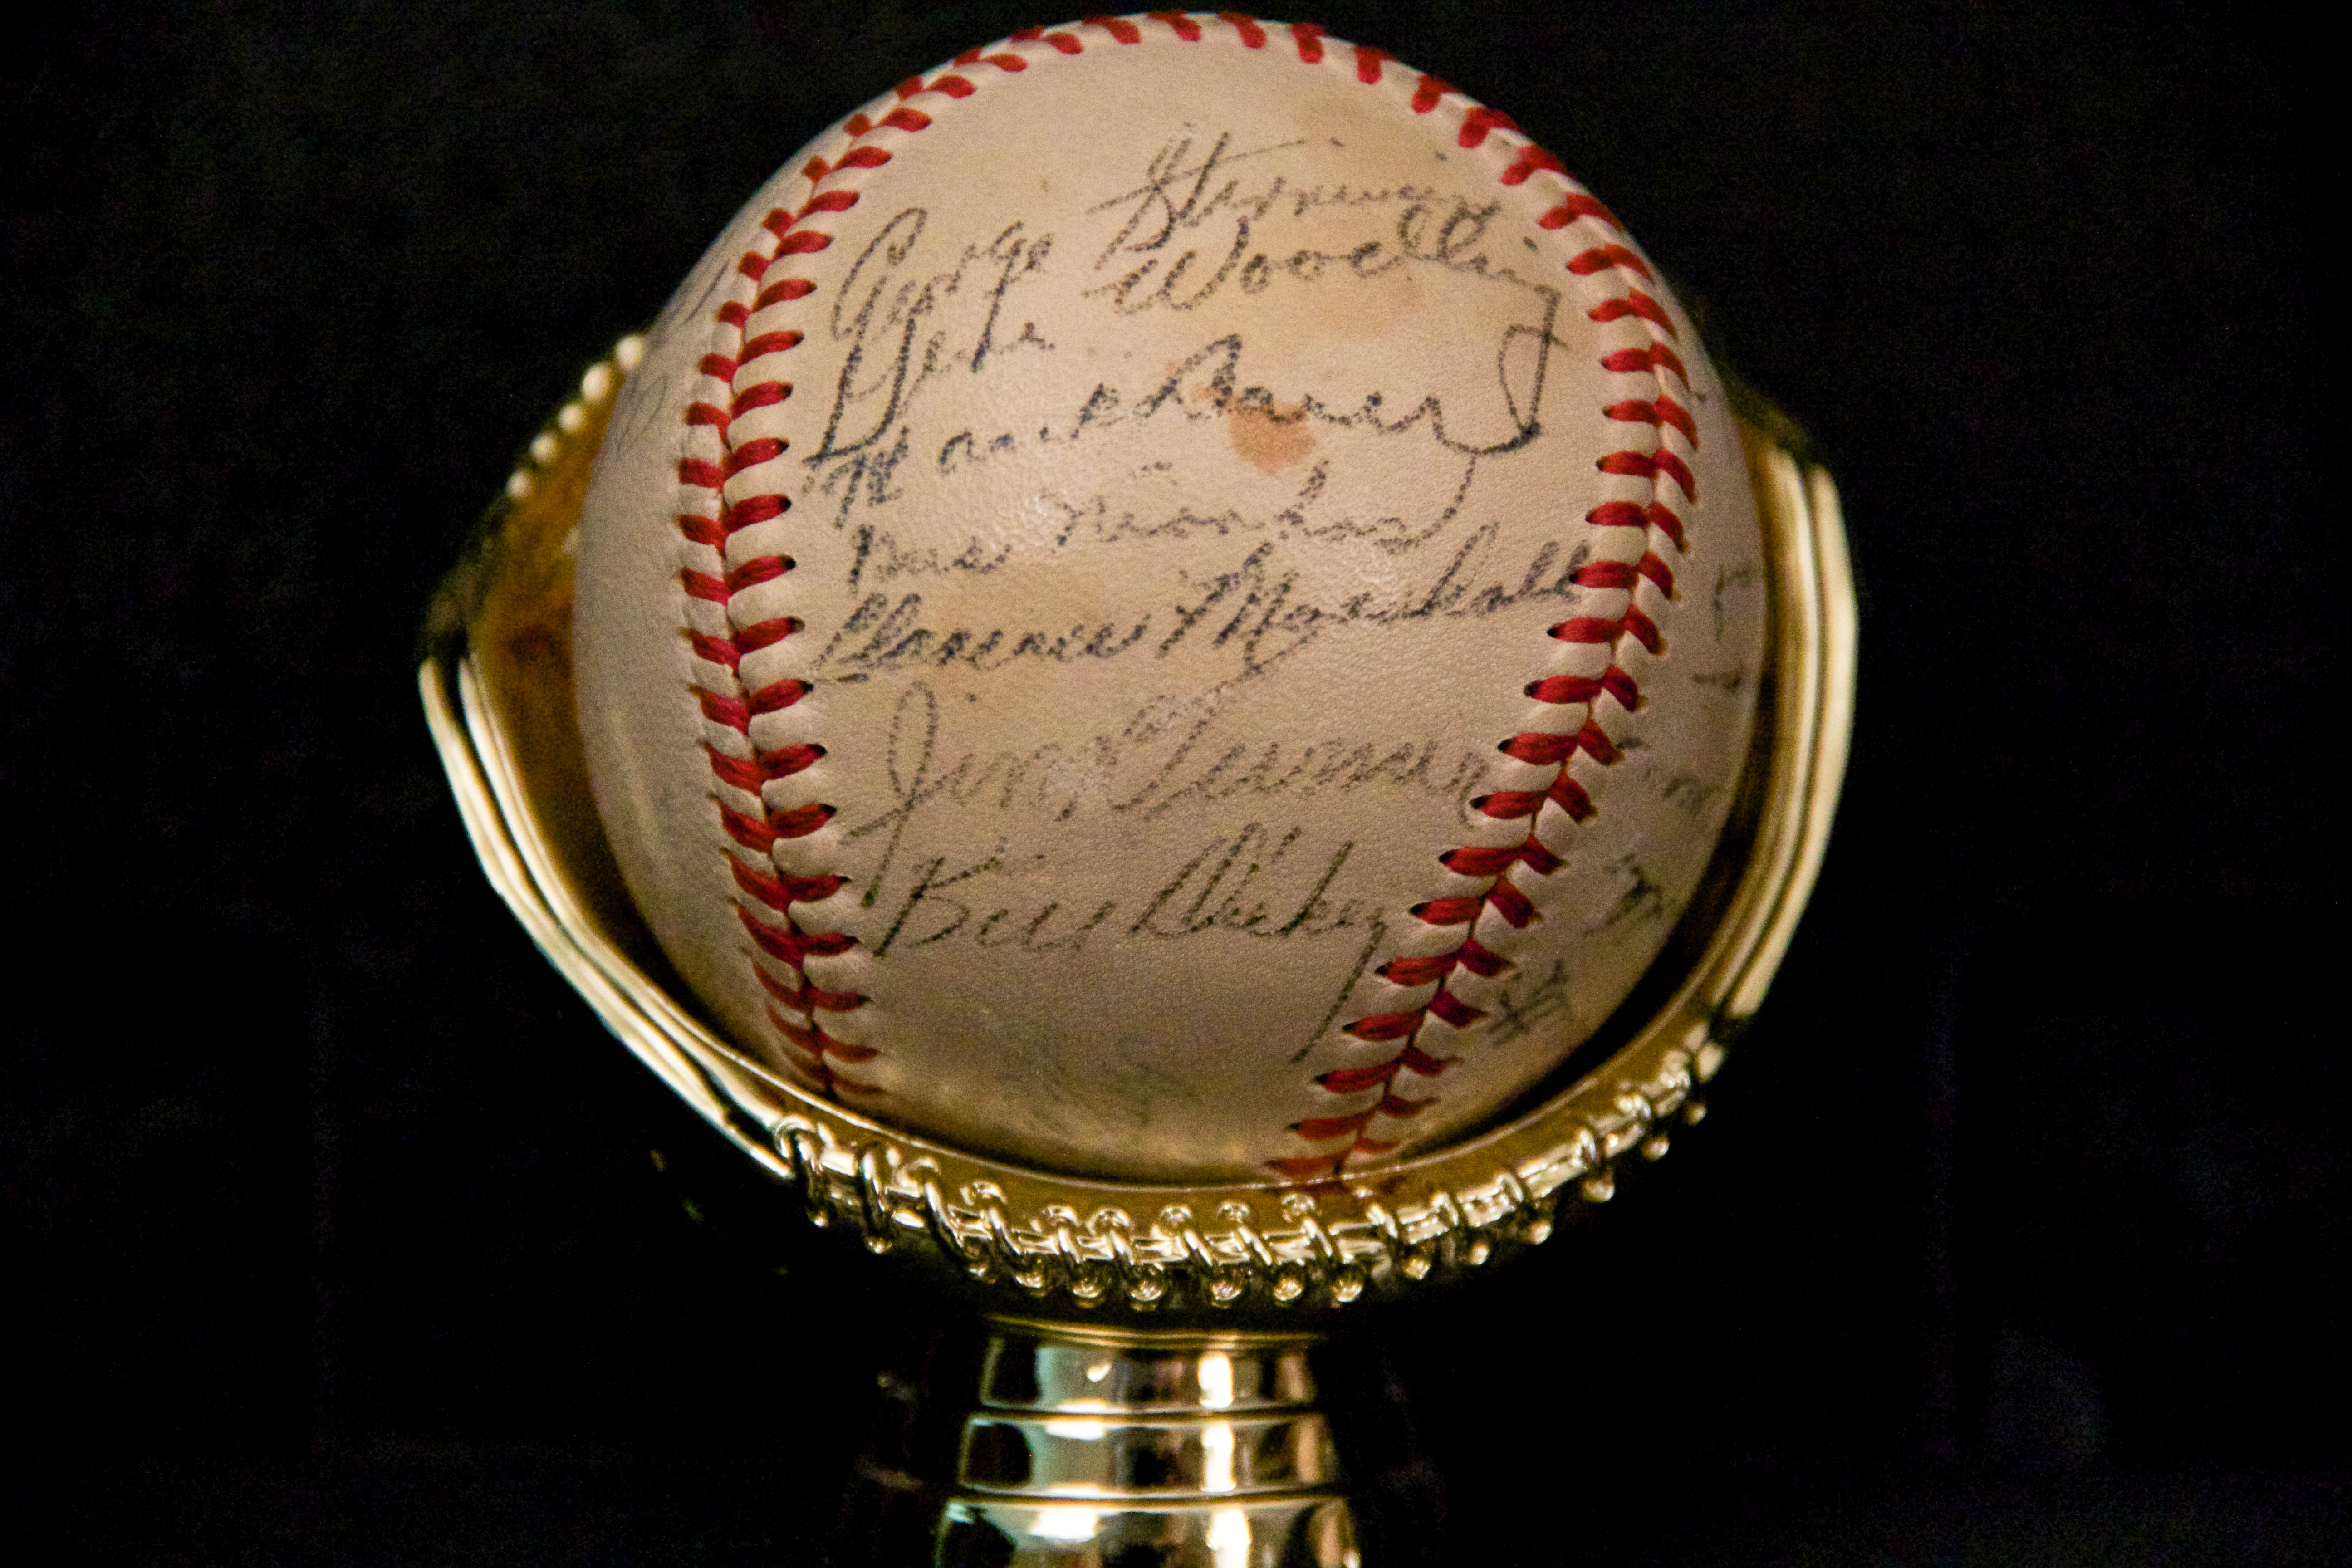 George Stirnweiss
Gene Woodling
Hank Bauer
Gus Niarhos
Clarence Marshall
Jim Turner
Bill Dickey